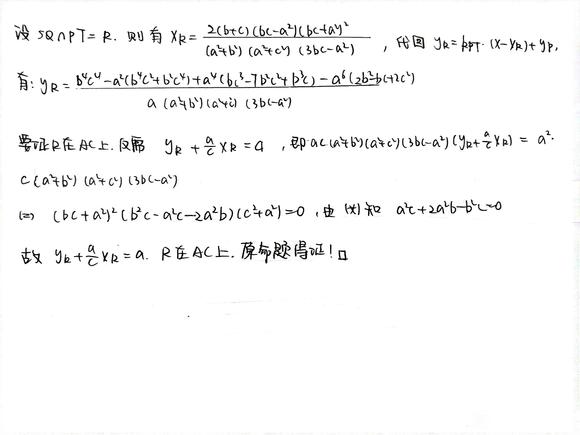 设 SQ∩PT=R. 则有 X_R = \frac{2(b+c)(bc-a²)(bc+a²)²}{(a²+b²)(a²+c²)(3bc-a²)} , 代回 y_R=k_{PT}·(X-X_R)+y_P,
有: y_R = \frac{b⁴c⁴-a²(b⁴c²+b²c⁴)+a⁴(bc³-7b²c²+b³c)-a⁶(2b²-b(+2c²)}{a(a²+b²)(a²+c²)(3bc-a²)}
要证R在AC上. 只需 y_R+\frac{a}{c}X_R=a , 即 ac(a²+b²)(a²+c²)(3bc-a²)(y_R+\frac{a}{c}X_R) = a²·
c(a²+b²)(a²+c²)(3bc-a²)
(=) (bc+a²)²(b²c-a²c-2a²b)(c²+a²)=0 , 由(*)知 a²c+2a²b-b²c=0
故 y_R+\frac{a}{c}X_R=a. R在AC上. 原命题得证!□